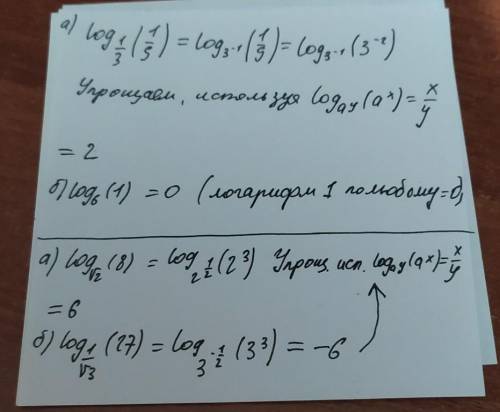 а) log_{1/3}(1/9) = log_{3^{-1}}(1/9) = log_{3^{-1}}(3^{-2})
Упрощаем, используя log_{a^y}(a^x) = x/y
= 2
б) log_6(1) = 0 (логарифм 1 по любому = 0)
а) log_{√2}(8) = log_{2^{1/2}}(2^3) Упрощ. исп. log_{a^y}(a^x) = x/y
= 6
б) log_{1/√3}(27) = log_{3^{-1/2}}(3^3) = -6